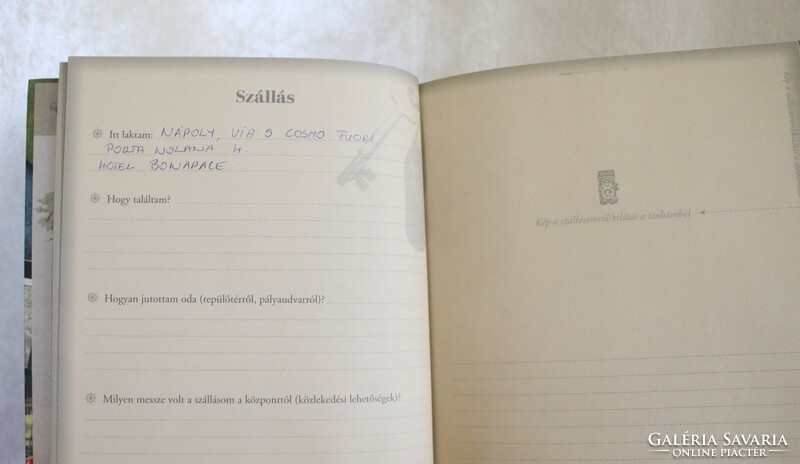 Szállás
Itt laktam: NÁPOLY, VIA S COSMO FUORI
PORTA NOLANA 4.
HOTEL BONAPACE
Hogy találtam?
Hogyan jutottam oda (repülőtérről, pályaudvarról)?
Milyen messze volt a szállásom a központtól (közlekedési lehetőségek)?
Kép a szállásomról/kilátás a szobámból
GALÉRIA SAVARIA
ONLINE PIACTÉR